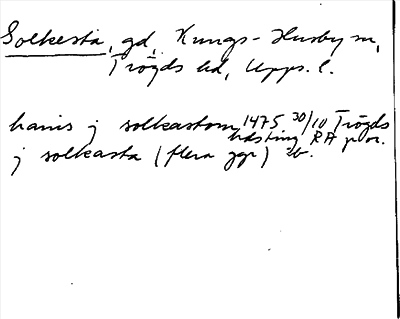 Solkesta, gd, Kungs-Husby sn,
Trögds hd, Upps. l.
hanis j solkastom 1475 30/10 Trögds
hästing RA p or.
j solkasta (flera ggr) ib.